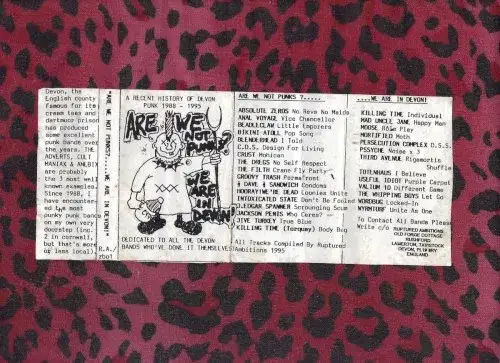 Devon, the
English county
famous for its
cream teas and
dartmoor prison
has produced
some excellent
punk bands over
the years. THE
ADVERTS, CULT
MANIAX & AMEBIX
are probably
the 3 most well
known examples.
Since 1988, I
have encounter-
ed the most
punky punk bands
on my own very
doorstep (inc.
2 in cornwall,
but that's more
or less local).
R.A./
"ARE WE NOT PUNKS?... WE ARE IN DEVON!"
A RECENT HISTORY OF DEVON
PUNK 1988 - 1995
ARE WE
NOT
PUNKS?
WE
ARE IN
DEVON!
DEDICATED TO ALL THE DEVON
BANDS WHO'VE DONE IT THEMSELVES
ARE WE NOT PUNKS ?.....
ABSOLUTE ZEROS No Revs No Maids
ANAL VOYAGE Vice Chancellor
BEADLECLAW Little Emporers
BIKINI ATOLL Pop Song
BLENDERHEAD I Told
C.D.S. Design for Living
CRUST Mohican
THE DRUGS No Self Respect
THE FILTH Crane Fly Party
GROOVY TRASH Permafrost
& DAVE, I SANDWICH Condoms
IGNORATIVE'RE DEAD Loonies Unite
INTOXICATED STATE Don't Be Fooled
JLEDGAR SPANNER Scrounging Scum
JACKSON PENIS Who Ceres?
JIVE TURKEY True Blue
KILLING TIME (Torquay) Body Bag
All Tracks Compiled By Ruptured
Ambitions 1995
....WE ARE IN DEVON!
KILLING TIME Individual
MAD UNCLE JANE Happy Man
MOOSE Role Play
MORTIFIED Moth
PERSECUTION COMPLEX D.S.S.
PSSYCHE Noise x 3
THIRD AVENUE Rigermortis
Shuffle
TOTENHAUS I Believe
USELESS IDIOT Purple Carpet
VALIUM 10 Different Game
THE WHIPPING BOYS Let Go
WORDBUG Locked-In
WYRNTORF Unite As One
To Contact All Bands Please
Write c/o RUPTURED AMBITIONS
OLD FORGE COTTAGE
RUSHFORD
LAMERTON, TAVISTOCK
DEVON, PL19 8RY
ENGLAND